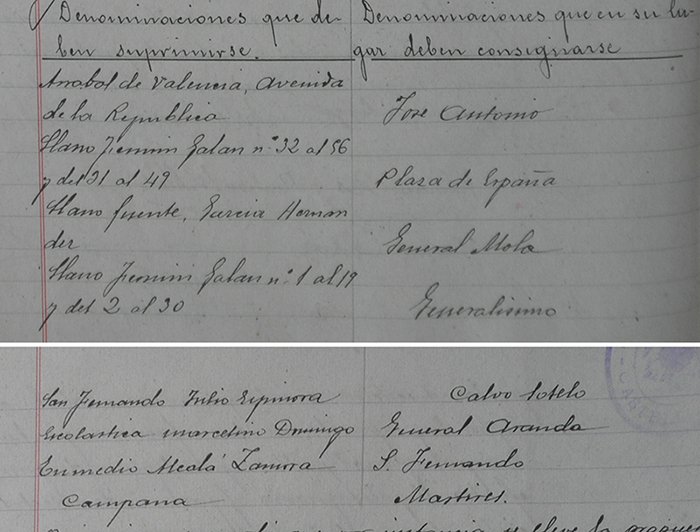 Denominaciones que de-
ben suprimirse.
Denominaciones que en su lu-
gar deben consignarse
Arrabal de Valencia, Avenida
de la Republica
Jose Antonio
Llano Fermin Galan nº 32 al 56
y del 31 al 49
Plaza de España
Llano fuente, Garcia Hernan
dez
General Mola
Llano Fermin Galan nº 1 al 19
y del 2 al 30
Generalisimo
San Fernando Julio Espinosa
Calvo Sotelo
Escolastica Marcelino Domingo
General Aranda
Enmedio Alcalá Zamora
S. Fernando
Campana
Martires.